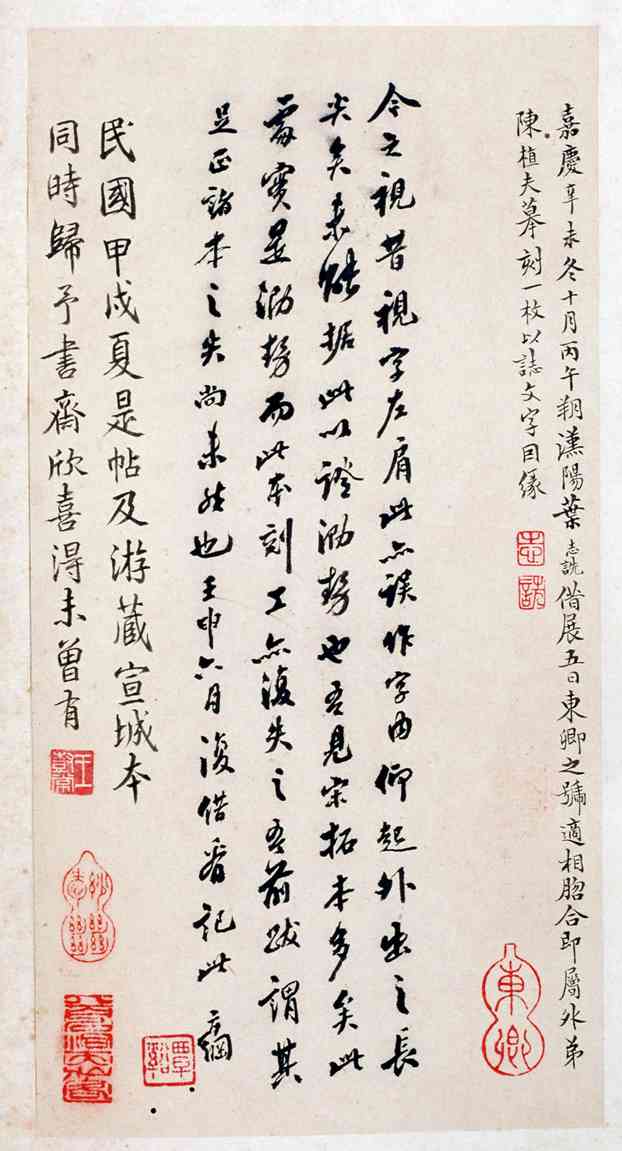 嘉慶辛未冬十月丙午朔漢陽葉志詵借展五日東卿之號適相脗合即屬外弟
陳植夫摹刻一枚以誌文字因緣
志詵
東卿
今之視昔視字左肩此亦誤作字由仰起外出之長
尖矣未能據此以證泐勢也吾見宋拓本多矣此
處實是泐勢而此本刻工亦復失之吾前跋謂其
足正諸本之失尚未然也壬申六月復借看記此 綱
覃谿
民國甲戌夏是帖及游藏宣城本
同時歸予書齋欣喜得未曾有